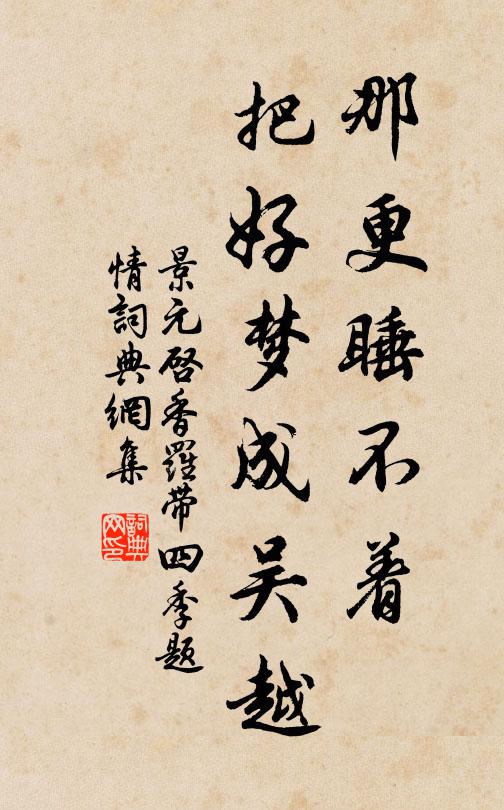 那更睡不着
把好梦成吴越
景元启香羅带四季题
情詞典網集
詞典网印